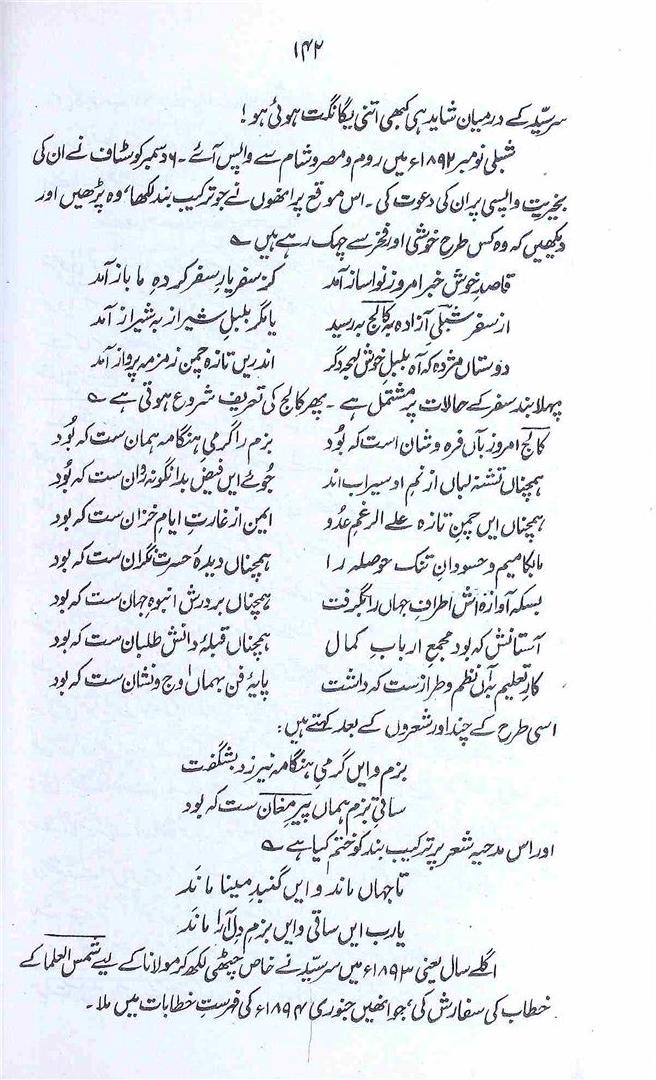 ۱۴۲
سرسیّد کے درمیان شاید ہی کبھی اتنی یگانگت ہوئی ہو!
شبلی نومبر ۱۸۹۲ء میں روم و مصر و شام سے واپس آئے۔ ۶ دسمبر کو سٹاف نے ان کی
بخیریت واپسی پر ان کی دعوت کی۔ اس موقع پر انھوں نے جو ترکیب بند لکھا، وہ پڑھیں اور
دیکھیں کہ وہ کس طرح خوشی اور فخر سے چہک رہے ہیں ؎
قاصدِ خوش خبر امروز نوا ساز آمد کز سفر یارِ سفر کردہِ ما باز آمد
از سفر شبلیِ آزادہ بہ کالج بہ رسید یا مگر بلبلِ شیراز بہ شیراز آمد
دوستاں مژدہ کہ آہ بلبل خوش لہجہ دگر اندریں تازہ چمن زمزمہ پرواز آمد
پہلا بند سفر کے حالات پر مشتمل ہے۔ پھر کالج کی تعریف شروع ہوتی ہے ؎
کالج امروز بآں فرہ و شان است کہ بُود بزم را گرمیِ ہنگامہ ہمان ست کہ بُود
ہمچناں تشنہ لباں از نمِ او سیراب اند جُوئے ایں فیض بدانگونہ رواں ست کہ بُود
ہمچناں ایں چمنِ تازہ علے الرغمِ عدُو ایمن از غارتِ ایامِ خزان ست کہ بود
ما بکامیم و حسودانِ تنک حوصلہ را ہمچناں دیدۂ حسرت نگران ست کہ بود
بسکہ آوازہ اش اطرافِ جہاں را بگرفت ہمچناں بر درش انبوہِ جہان ست کہ بود
آستانش کہ بود مجمعِ اربابِ کمال ہمچناں قبلۂ دانش طلبان ست کہ بود
کارِ تعلیم بہ آں نظم و طراز ست کہ داشت پایۂ فن بہماں اوج و نشان ست کہ بود
اسی طرح کے چند اور شعروں کے بعد کہتے ہیں:
بزم و ایں گرمیِ ہنگامہ نیرزد بشگفت
ساقیِ بزم ہماں پیرِ مغان ست کہ بود
اور اس مدحیہ شعر پر ترکیب بند کو ختم کیا ہے ؎
تا جہاں ماند و ایں گنبدِ مینا ماند
یارب ایں ساقی و ایں بزمِ دل آرا ماند
اگلے سال یعنی ۱۸۹۳ء میں سرسیّد نے خاص چٹھی لکھ کر مولانا کے لیے شمس العلما کے
خطاب کی سفارش کی، جو انھیں جنوری ۱۸۹۴ء کی فہرستِ خطابات میں ملا۔